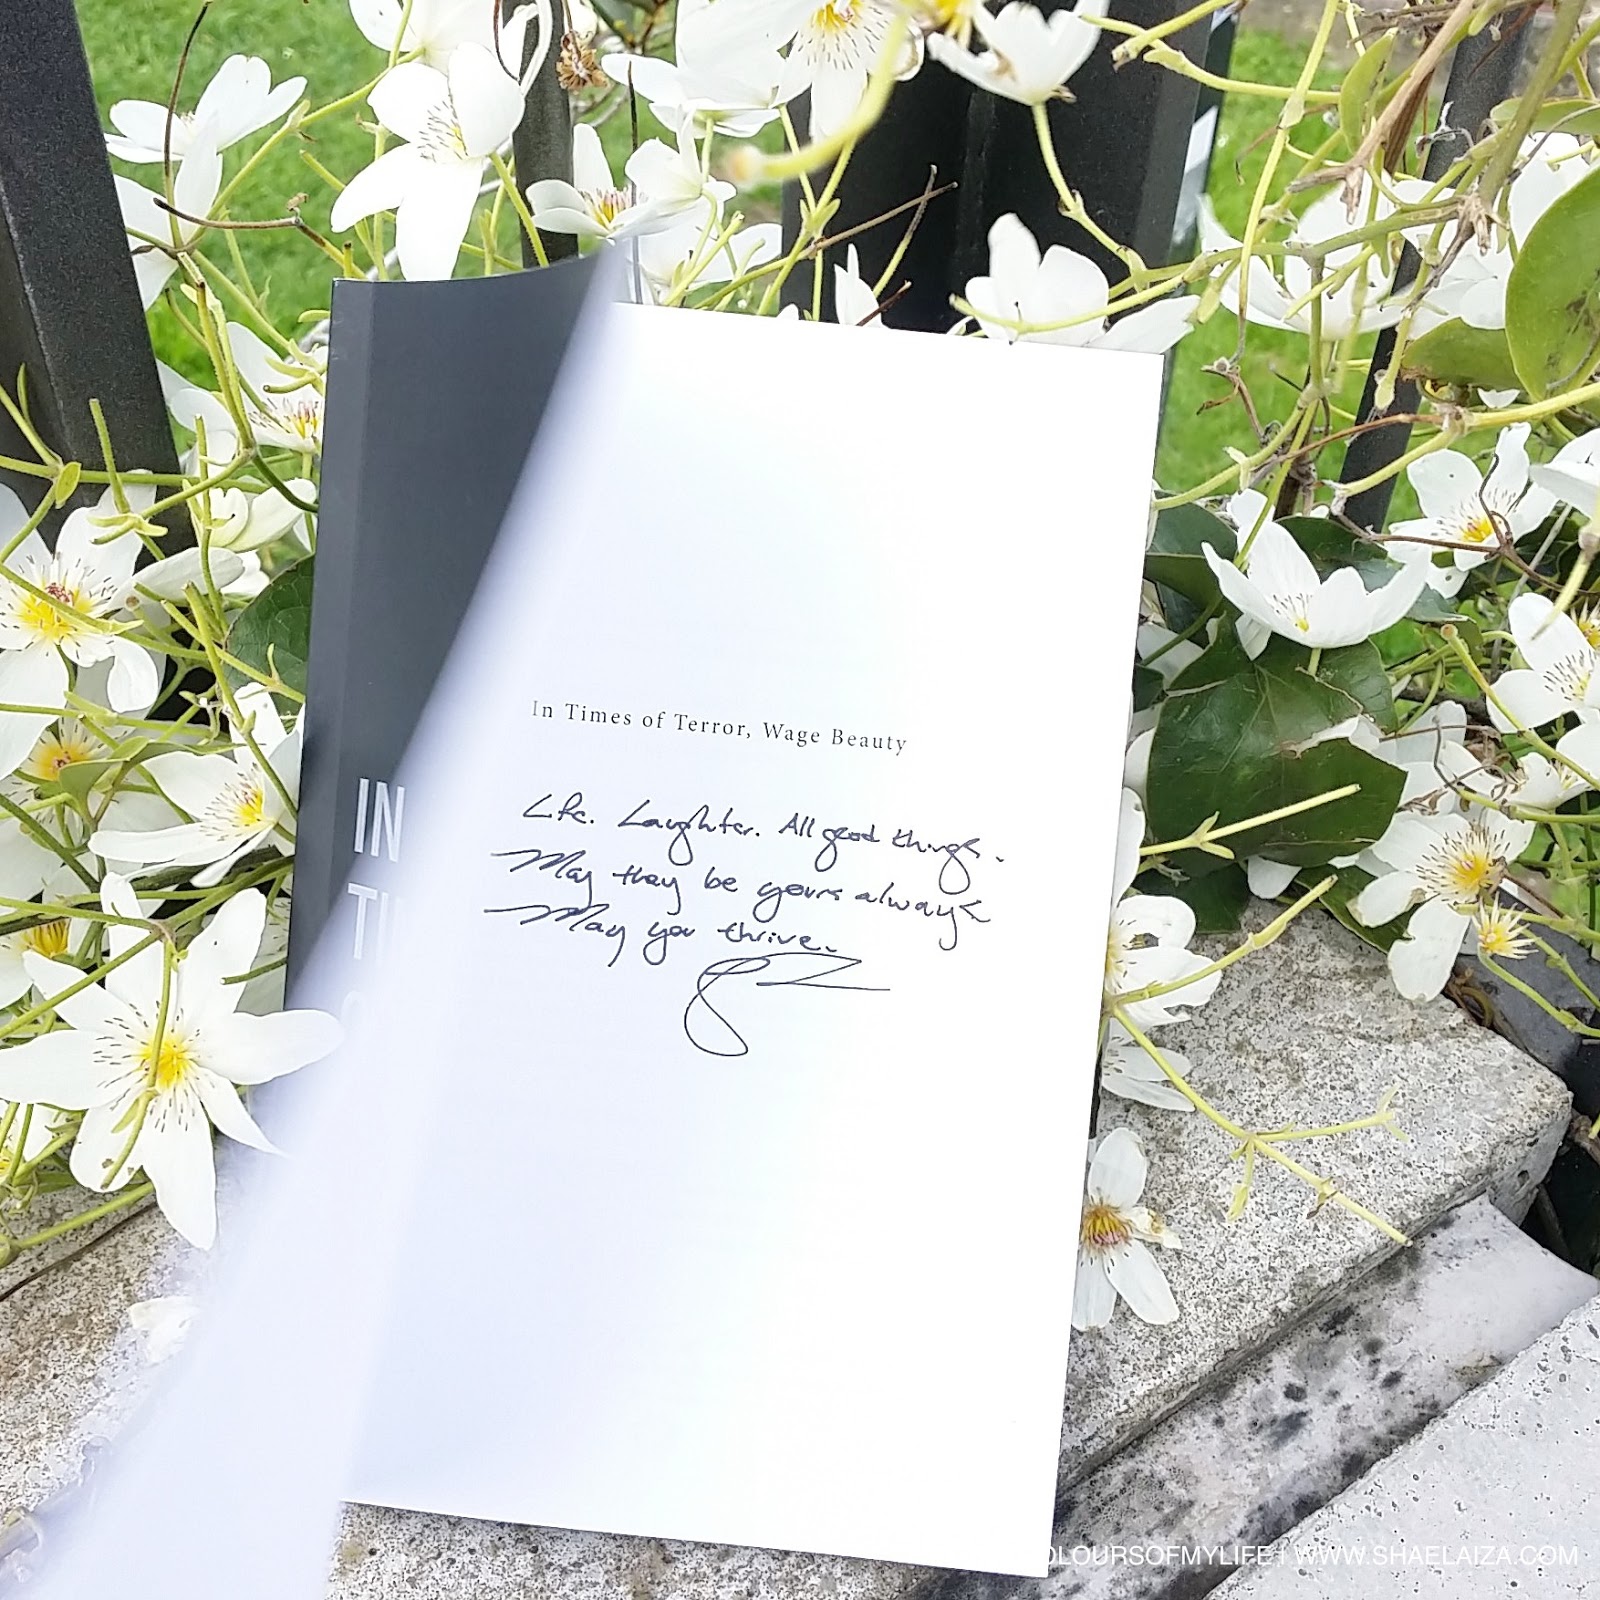 IN
In Times of Terror, Wage Beauty
Life. Laughter. All good things.
May they be yours always
May you thrive.
OLOURSOFMYLIFE | WWW.SHAELAIZA.COM